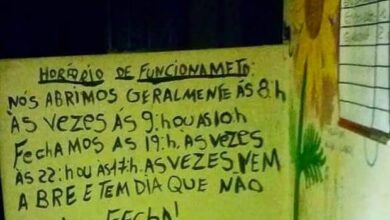 HORÁRIO DE FUNCIONAMETO:
NÓS ABRIMOS GERALMENTE ÁS 8:h
ÀS VEZES ÁS 9:h OU ÁS 10:h
FECHAMOS ÀS 19:h. ÀS VEZES
ÀS 22:h OU ÀS 17:h AS VEZES VEM
A BRE E TEM DIA QUE NÃO
FECHA!